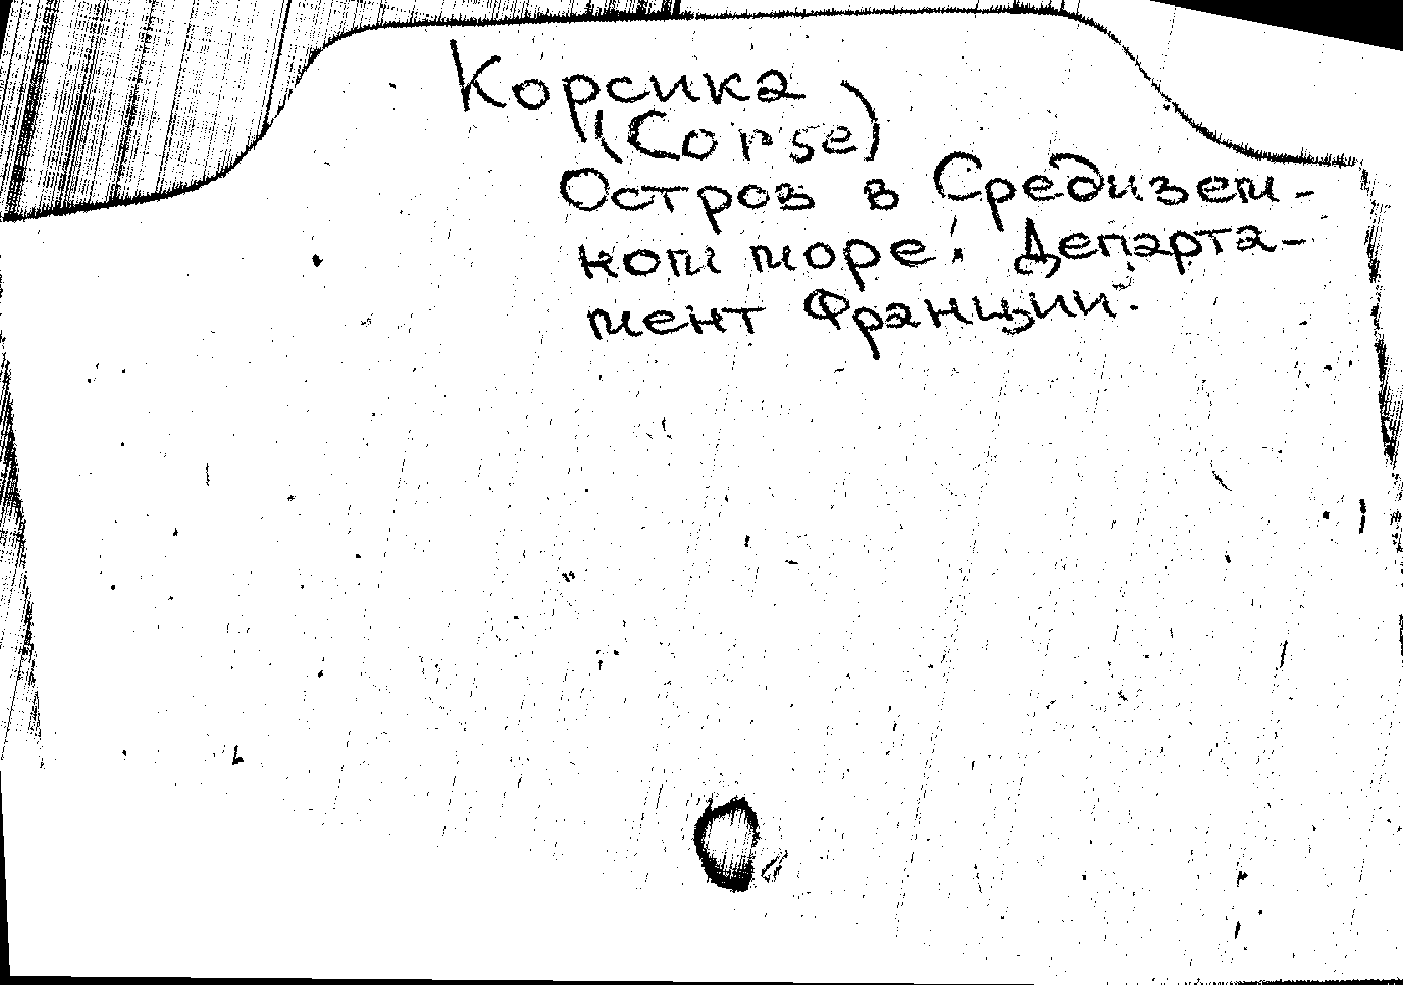 Корсика
(Corse)
Остров в Средизем-
ном море. Департа-
мент Франции.